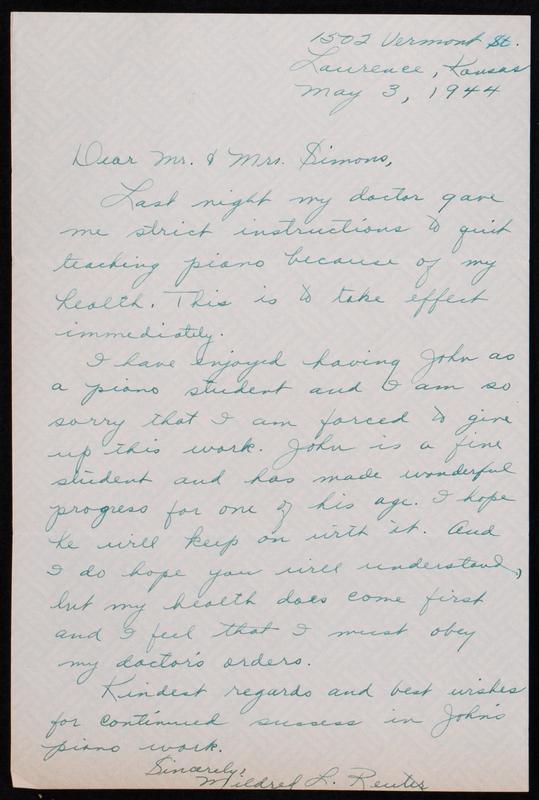 1502 Vermont St.
Lawrence, Kansas
May 3, 1944
Dear Mr. & Mrs. Simons,
Last night my doctor gave
me strict instructions to quit
teaching piano because of my
health. This is to take effect
immediately.
I have enjoyed having John as
a piano student and I am so
sorry that I am forced to give
up this work. John is a fine
student and has made wonderful
progress for one of his age. I hope
he will keep on with it. And
I do hope you will understand,
but my health does come first
and I feel that I must obey
my doctor's orders.
Kindest regards and best wishes
for continued success in John's
piano work.
Sincerely,
Mildred L. Reuter